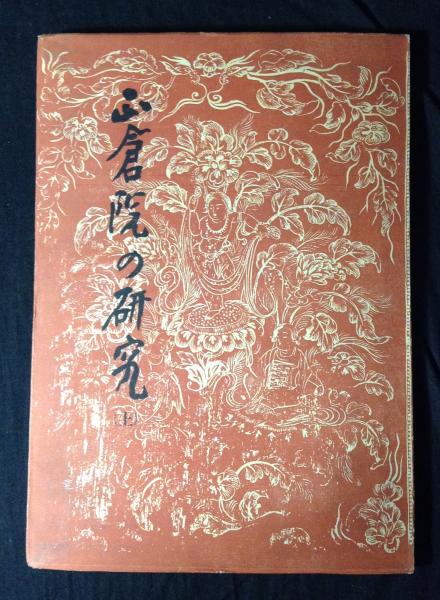 正倉院の研究
(上)